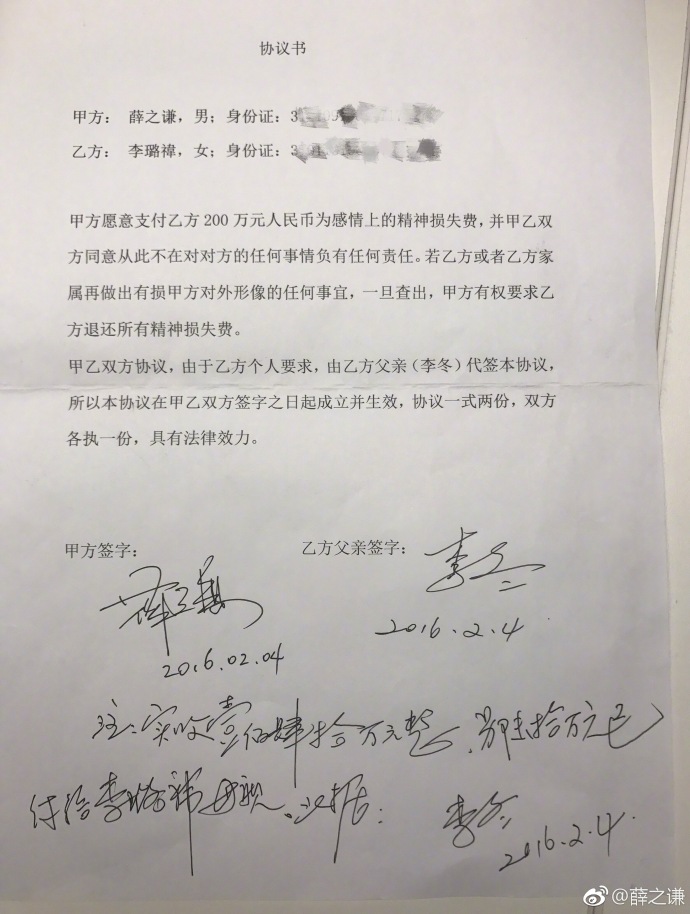 协议书
甲方： 薛之谦，男；身份证：3
乙方： 李璐禕，女；身份证：3
甲方愿意支付乙方 200 万元人民币为感情上的精神损失费，并甲乙双
方同意从此不在对对方的任何事情负有任何责任。若乙方或者乙方家
属再做出有损甲方对外形像的任何事宜，一旦查出，甲方有权要求乙
方退还所有精神损失费。
甲乙双方协议，由于乙方个人要求，由乙方父亲（李冬）代签本协议，
所以本协议在甲乙双方签字之日起成立并生效，协议一式两份，双方
各执一份，具有法律效力。
甲方签字： 乙方父亲签字：
薛之谦 李冬
2016.02.04 2016.2.4
注：实收壹佰肆拾万元整，另陆拾万元已
付给李璐禕母亲。以据：
李冬
2016.2.4.
@薛之谦